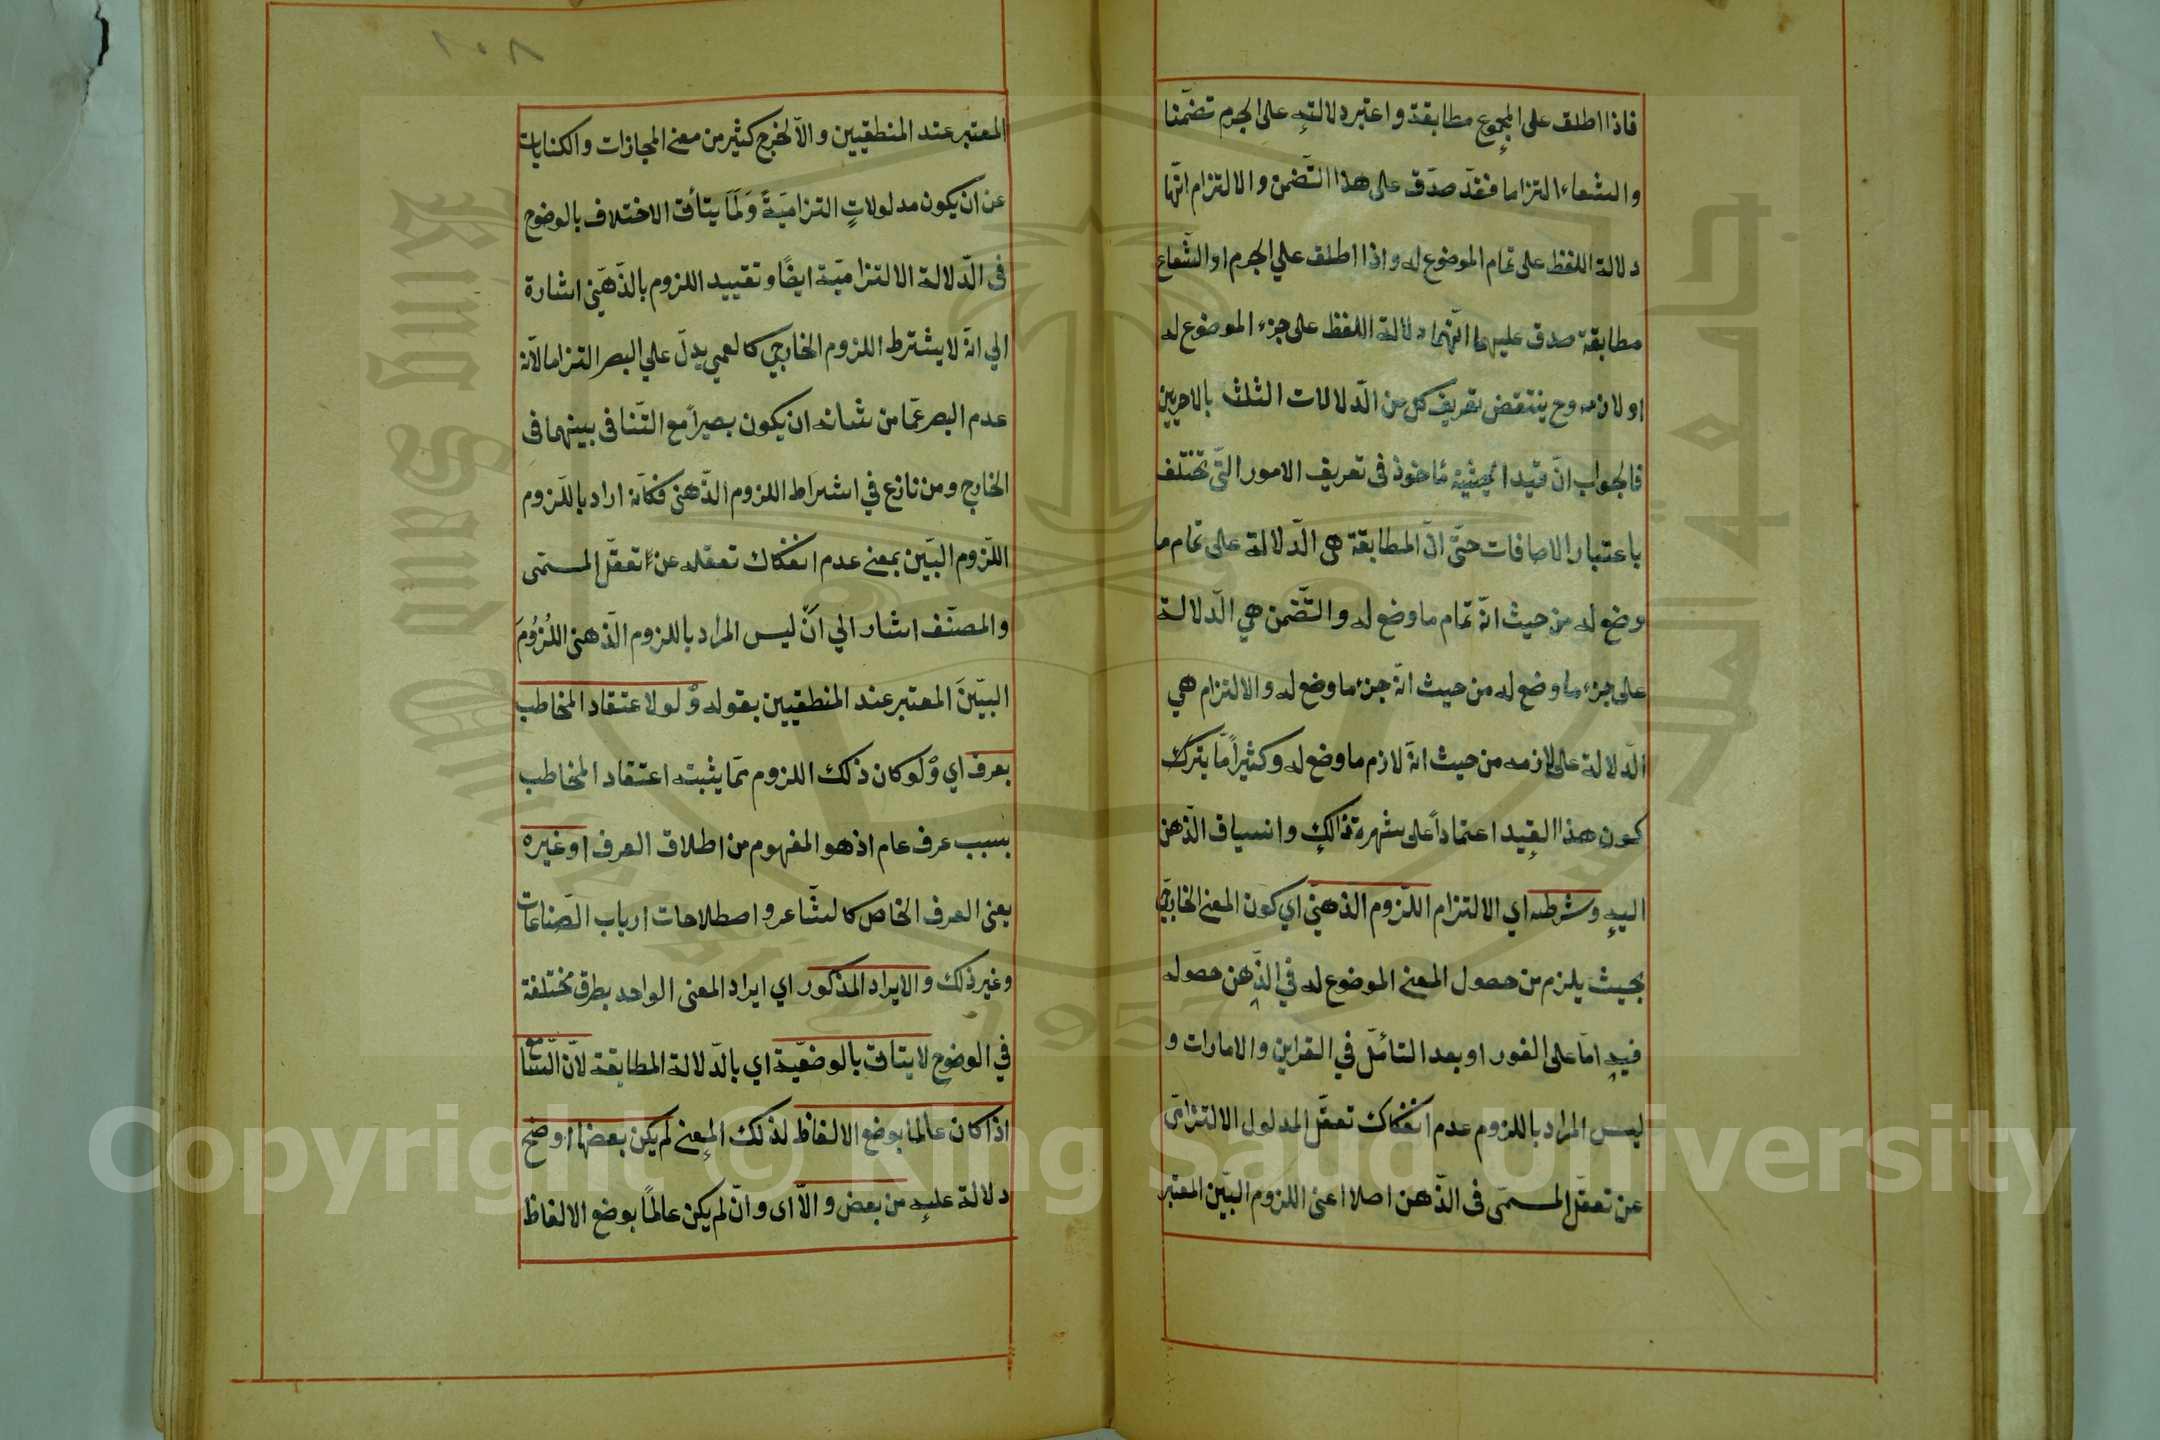 فاذا اطلق على المجموع مطابقة واعتبر دلالته على الجرم تضمّنا
والشعاء التزاما فقد صدق على هذا التّضمن والالتزام انّها
دلالة اللفظ على تمام الموضوع له واذا اطلق علي الجرم او الشّعاع
مطابقة صدق عليهما انّهما دلالة اللفظ على جزء الموضوع له
او لازمه وح ينتقض تعريف كل من الدّلالات الثلث بالاخريين
فالجواب انّ قيد الحيثية مأخوذ فى تعريف الامور الّتى تختلف
باعتبار الاضافات حتّى انّ المطابقة هى الدّلالة على تمام ما
وضع له من حيث انّه تمام ما وضع له والتّضمن هي الدّلالة
على جزء ما وضع له من حيث انّه جزء ما وضع له والالتزام هي
الدّلالة على لازمه من حيث انّه لازم ما وضع له وكثيراً مّا يترك
كون هذا القيد اعتماداً على شهرة ذالك وانسياق الذّهن
اليه وشرطه اي الالتزام اللّزوم الذهنىّ اي كون المعنى الخارجىّ
بحيث يلزم من حصول المعنى الموضوع له في الذّهن حصوله
فيه امّا على الفور او بعد التائمّل في القراين والامارات و
ليس المراد باللزوم عدم انفكاك تعقّل المدلول الالتزامىّ
عن تعقّل المسمّى فى الذّهن اصلا اعنى اللزوم البيّن المعتبر
١٠٨
المعتبر عند المنطقيين والاّ لخرج كثير من معنى المجازات والكنايات
عن ان يكون مدلولاتٍ التزاميّةً ولَمَا يتأتى الاختلاف بالوضوح
فى الدّلالة الالتزاميّة ايضًا وتقييد اللزوم بالذّهنى اشارة
الي انّه لا يشترط اللزوم الخارجي كالعمي يدلّ علي البصر التزاما لانّه
عدم البصر عمّا من شانه ان يكون بصيراً مع التّنافى بينهما فى
الخارج ومن نازع في اشتراط اللزوم الذّهنى فكانّه اراد باللّزوم
اللّزوم البيّن بمعنى عدم انفكاك تعقله عن تعقّل المسمّى
والمصنّف اشار الي انّ ليس المراد باللزوم الذّهنى اللُزُومَ
البيّنَ المعتبر عند المنطقيين بقوله وٌلو لاعتقاد المخاطب
بعرف اي وٌلو كان ذلك اللزوم ممّا يثبته اعتقاد المخاطب
بسبب عرف عام اذ هو المفهوم من اطلاق العرف او غيره
يعنى العرف الخاص كالشّاعر واصطلاحات ارباب الصّناعات
وغير ذلك والايراد المذكور اي ايراد المعنى الواحد بطرق مختلفة
في الوضوح لا يتاتى بالوضعيّة اي بالدّلالة المطابقة لانّ السّامع
اذا كان عالما بوضع الالفاظ لذلك المعنى لم يكن بعضها اوضح
دلالة عليه من بعض والاّ اى وانّ لم يكن عالمًا بوضع الالفاظ
Copyright © King Saud University
King Saud University
جامعة الملك سعود
1957